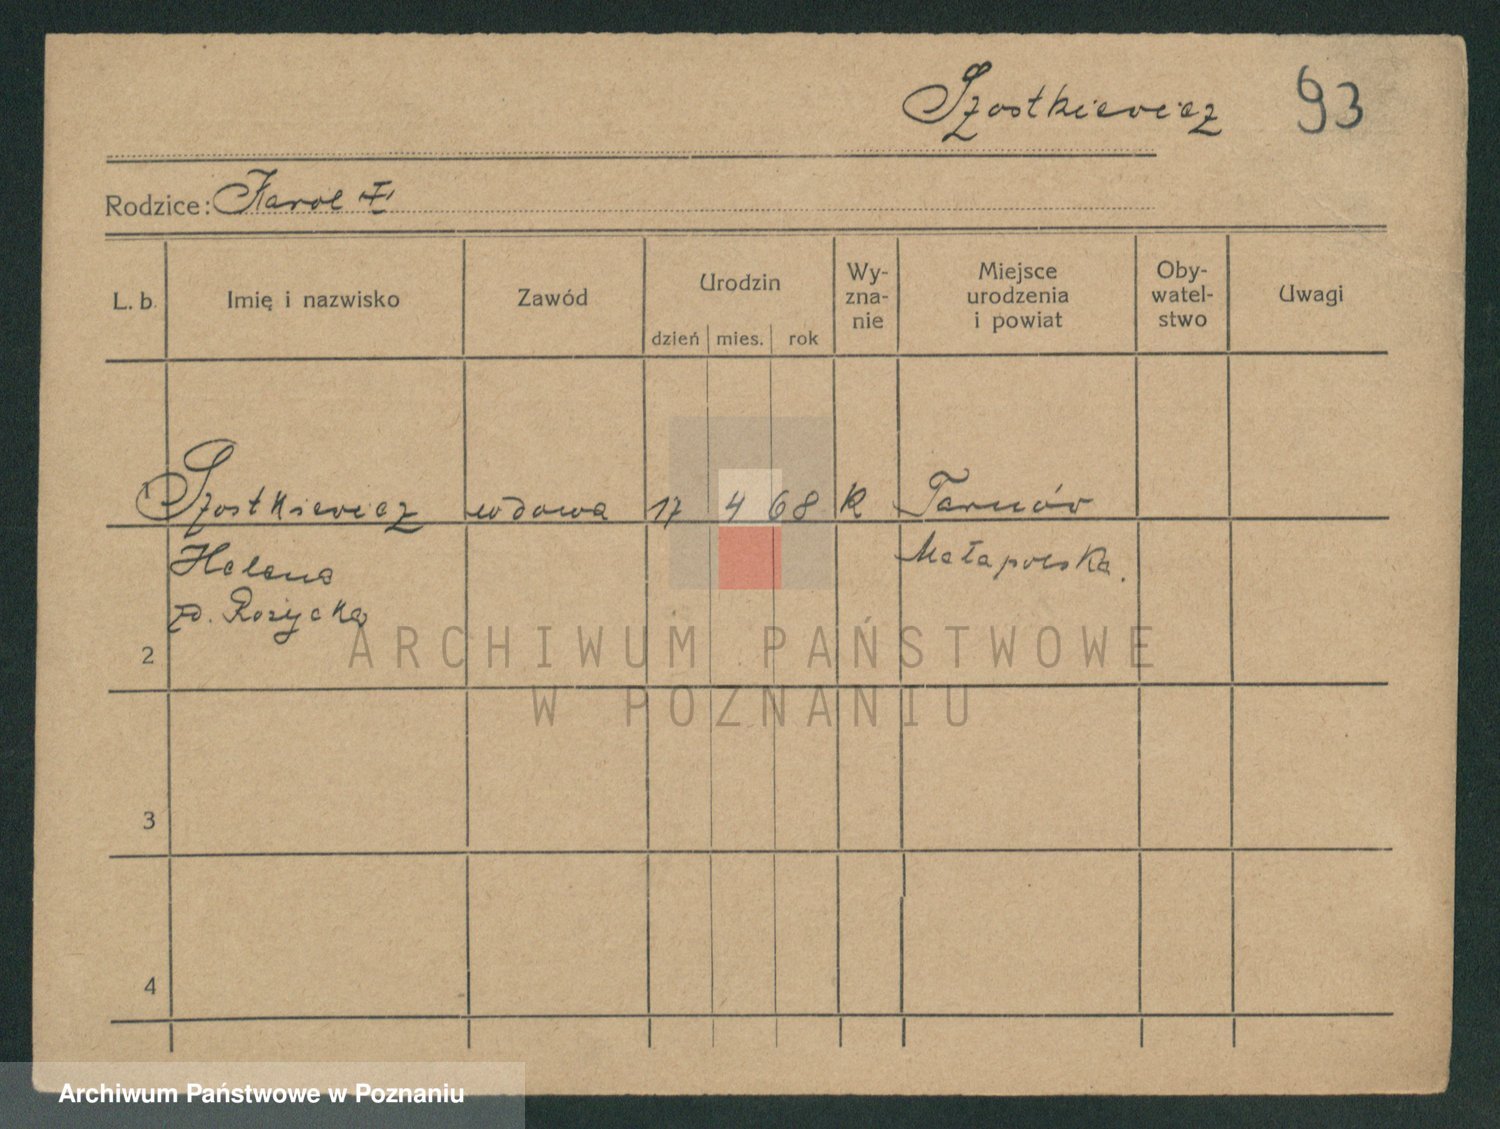 Szostkiewicz 93
Rodzice: Karol
L. b. Imię i nazwisko Zawód Urodzin dzień mies. rok Wy-zna-nie Miejsce urodzenia i powiat Oby-watel-stwo Uwagi
1 Szostkiewicz wdowa 17 4 68 K Tarnów
Helena Małapolska.
zd. Rożycka
2
3
4
ARCHIWUM PAŃSTWOWE
W POZNANIU
Archiwum Państwowe w Poznaniu